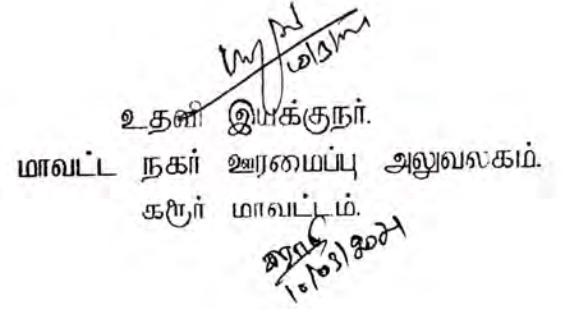 உதவி இயக்குநர்.
மாவட்ட நகர் ஊரமைப்பு அலுவலகம்.
கரூர் மாவட்டம்.